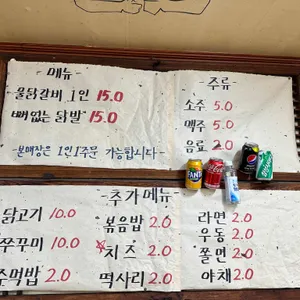 -메뉴-
물닭갈비 1인 15.0
뼈없는 닭발 15.0
-본매장은 1인1주문 가능합니다-
-주류-
소주 5.0
맥주 5.0
음료 2.0
추가메뉴
닭고기 10.0
쭈꾸미 10.0
주먹밥 2.0
볶음밥 2.0
치즈 2.0
떡사리 2.0
라면 2.0
우동 2.0
쫄면 2.0
야채 2.0